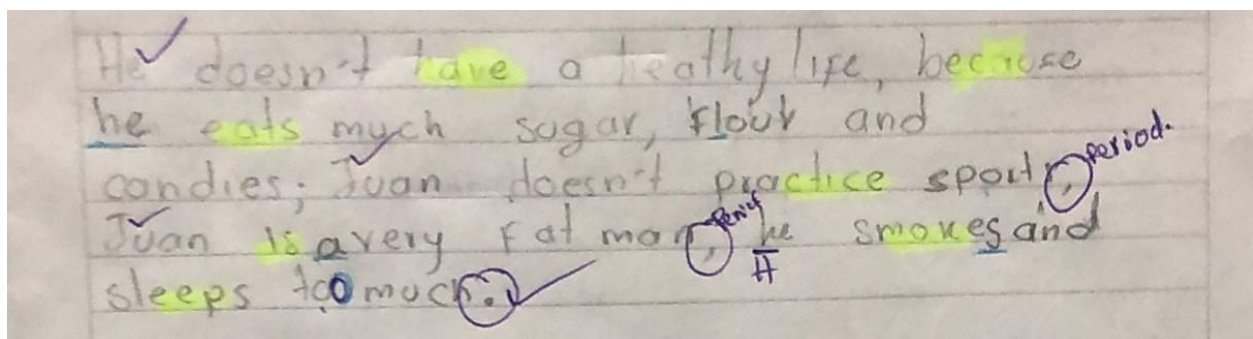 He doesn't have a heathy life, because
he eats much sugar, flour and
candies; Juan doesn't practice sport, period.
Juan is a very fat man, he smokes and
H
sleeps too much.